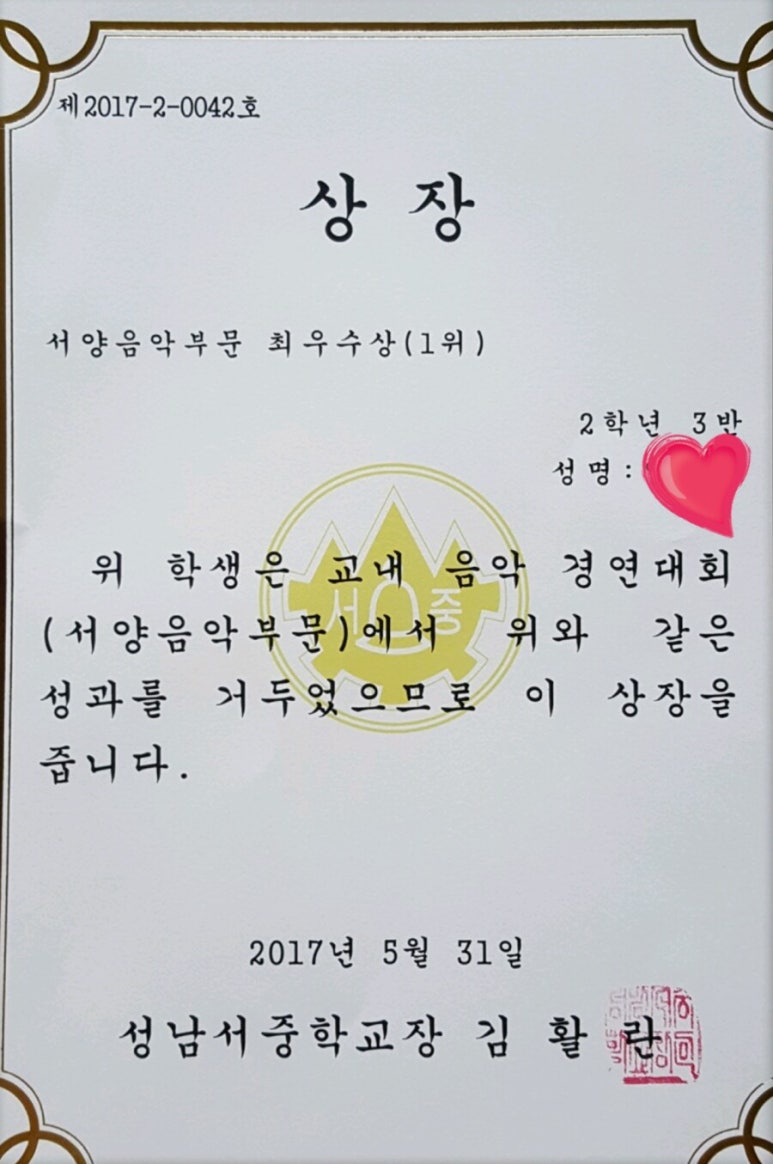 제 2017-2-0042 호
상 장
서양음악부문 최우수상(1위)
2학년 3반
성명 :
위 학생은 교내 음악 경연대회
(서양음악부문)에서 위와 같은
성과를 거두었으므로 이 상장을
줍니다.
서중
2017년 5월 31일
성남서중학교장 김 활 란